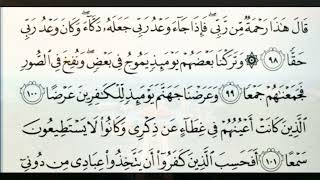 قَالَ هَٰذَا رَحْمَةٌ مِّن رَّبِّي ۖ فَإِذَا جَاءَ وَعْدُ رَبِّي جَعَلَهُ دَكَّاءَ ۖ وَكَانَ وَعْدُ رَبِّي
حَقًّا ٩٨ ۞ وَتَرَكْنَا بَعْضَهُمْ يَوْمَئِذٍ يَمُوجُ فِي بَعْضٍ ۖ وَنُفِخَ فِي الصُّورِ
فَجَمَعْنَاهُمْ جَمْعًا ٩٩ وَعَرَضْنَا جَهَنَّمَ يَوْمَئِذٍ لِّلْكَافِرِينَ عَرْضًا ١٠٠
الَّذِينَ كَانَتْ أَعْيُنُهُمْ فِي غِطَاءٍ عَن ذِكْرِي وَكَانُوا لَا يَسْتَطِيعُونَ
سَمْعًا ١٠١ أَفَحَسِبَ الَّذِينَ كَفَرُوا أَن يَتَّخِذُوا عِبَادِي مِن دُونِي